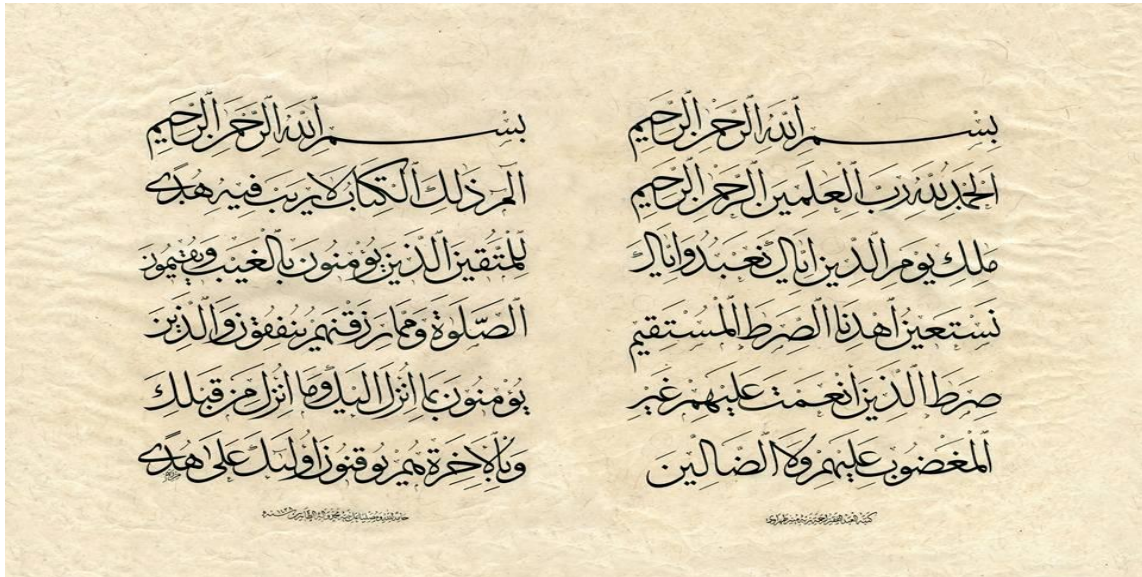 بسم الله الرحمن الرحيم
الحمد لله رب العلمين الرحمن الرحيم
ملك يوم الدين اياك نعبد واياك
نستعين اهدنا الصرط المستقيم
صرط الذين أنعمت عليهم غير
المغضوب عليهم ولا الضالين
بسم الله الرحمن الرحيم
الم ذلك الكتاب لا ريب فيه هدى
للمتقين الذين يؤمنون بالغيب ويقيمون
الصلوة ومما رزقنهم ينفقون والذين
يؤمنون بما انزل اليك وما انزل من قبلك
وبالاخرة هم يوقنون اولئك على هدى